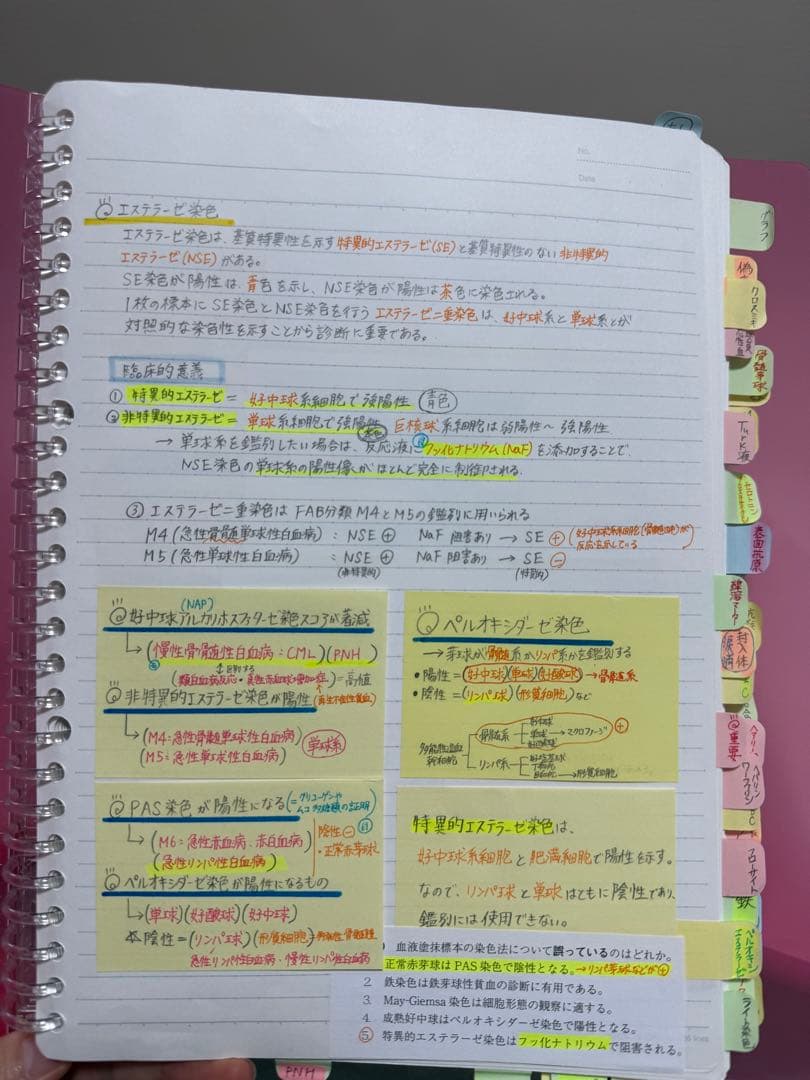 No.
Date
エステラーゼ染色
エステラーゼ染色は、基質特異性を示す特異的エステラーゼ(SE)と基質特異性のない非特異的
エステラーゼ(NSE)がある。
SE染色が陽性は、青色を示し、NSE染色が陽性は茶色に染色される。
1枚の標本にSE染色とNSE染色を行うエステラーゼ二重染色は、好中球系と単球系とが
対照的な染色性を示すことから診断に重要である。
臨床的意義
① 特異的エステラーゼ = 好中球系細胞で強陽性 青色
② 非特異的エステラーゼ = 単球系細胞で強陽性 巨核球系細胞は弱陽性〜強陽性
茶色
→ 単球系を鑑別したい場合は、反応液にフッ化ナトリウム(NaF)を添加することで、
NSE染色の単球系の陽性像がほとんど完全に制御される.
③ エステラーゼ二重染色は FAB分類 M4とM5の鑑別に用いられる
M4(急性骨髄単球性白血病) : NSE ⊕ NaF 阻害あり → SE ⊕ (好中球系細胞(骨髄)が
反応を示している)
M5(急性単球性白血病) : NSE ⊕ NaF 阻害あり → SE ⊖
(非特異的) (特異的)
(NAP)
好中球アルカリホスファターゼ染色スコアが著減
→(慢性骨髄性白血病:CML)(PNH)
↕ 区別する
類白血病反応・真性赤血球増加症 = 高値
(再生不良性貧血)
非特異的エステラーゼ染色が陽性
→(M4:急性骨髄単球性白血病)
(M5:急性単球性白血病)
単球系
ペルオキシダーゼ染色
→ 芽球が骨髄系かリンパ系かを鑑別する
• 陽性=(好中球)(単球)(好酸球)→骨髄系
• 陰性=(リンパ球)(形質細胞)など
多能性造血
幹細胞
骨髄系
好中球
単球→マクロファージ
好酸球
⊕
リンパ系
→形質細胞
PAS染色が陽性になる(=グリコーゲンや
ムコ多糖類の証明)
→(M6:急性赤血病、赤白血病)
(急性リンパ性白血病)
陰性 ⊖
・正常赤芽球
ペルオキシダーゼ染色が陽性になるもの
→(単球)(好酸球)(好中球)
陰性=(リンパ球)(形質細胞)
急性リンパ性白血病・慢性リンパ性白血病
特異的エステラーゼ染色は、
好中球系細胞と肥満細胞で陽性を示す。
なので、リンパ球と単球はともに陰性であり、
鑑別には使用できない。
血液塗抹標本の染色法について誤っているのはどれか。
正常赤芽球は PAS 染色で陰性となる。→リンパ芽球などが⊕
2. 鉄染色は鉄芽球性貧血の診断に有用である。
3. May-Giemsa 染色は細胞形態の観察に適する。
4. 成熟好中球はペルオキシダーゼ染色で陽性となる。
⑤ 特異的エステラーゼ染色はフッ化ナトリウムで阻害される。
グラフ
偽
クロスミキ
骨髄芽球
Türk液
セロトニン
表面抗原
線溶マーカー
封入体
重要
ヘパリン
ワーファリン
フローサイト
鉄
ペルオキシ
エステラーゼ
ライト染色
PNH